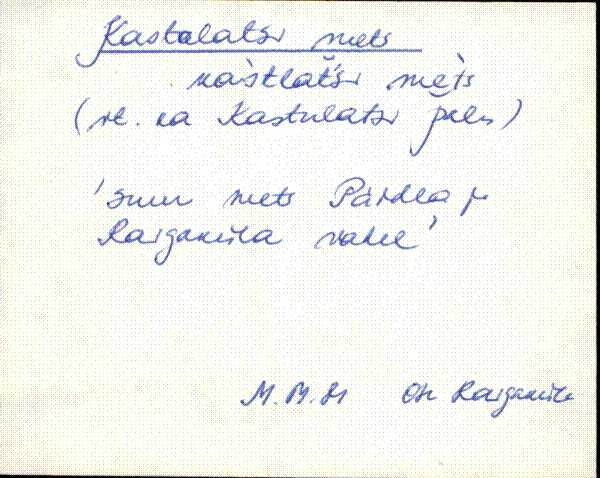 Kastolatsi mets
kàstlatši mèts
(vt. ka Kastolatsi palu)
'suur mets Pärdla ja
Raigaküla vahel'
M. M. M Ote Raigaküla